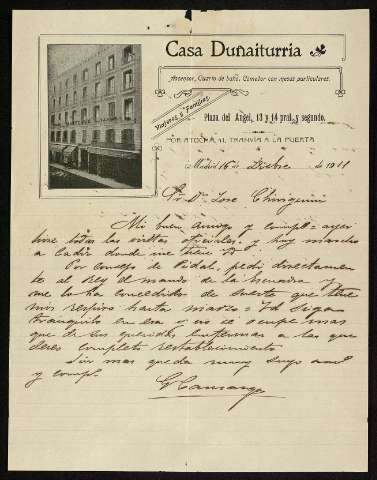 Casa Duñaiturria
Ascensor, Cuarto de baño, Comedor con mesas particulares.
Viajeros y Familias
Plaza del Angel, 13 y 14 pral. y segundo.
POR ATOCHA, EL TRANVÍA A LA PUERTA
Madrid 16 de Dicbre de 1911
Sr Dn Jose Chiriguini
Mi buen amigo y compº = ayer
hice todas las visitas oficiales, y hoy marcho
a Cadiz donde me tiene Vd
Por consejo de Pidal, pedi directamen
te al Rey el mando de la Escuadra y
me lo ha concedido de suerte que tiene
respiro hasta marzo = Vd siga
tranquilo en esa y no se ocupe mas
que de los queridos enfermos a los que
deseo completo restablecimiento
Sin mas queda muy suyo amº
y compº